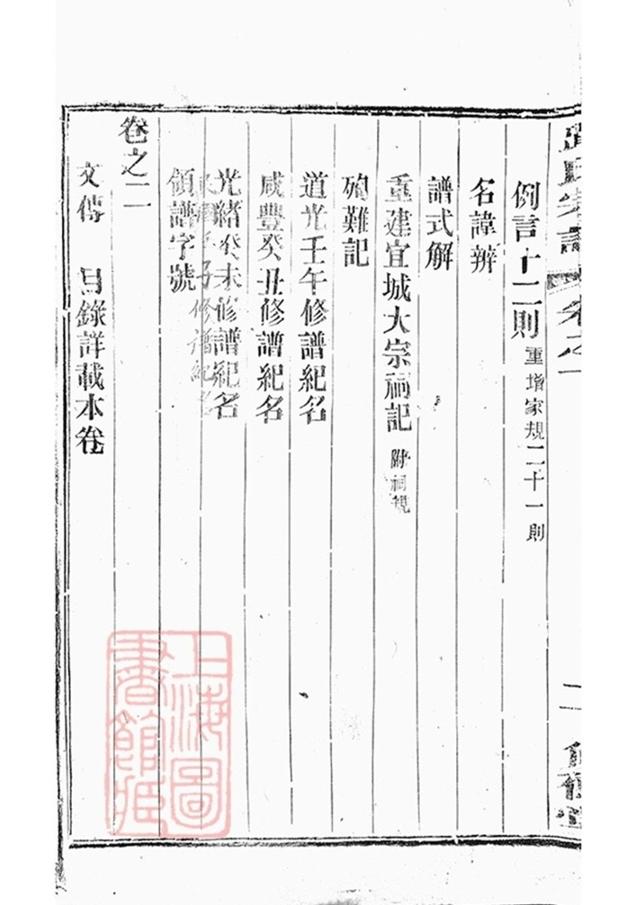 宗譜
卷之一
二
例言十二則 重增家規二十一則
名諱辨
譜式解
重建宜城大宗祠記 附祠規
殉難記
道光壬午修譜紀名
咸豐癸丑修譜紀名
光緒癸未修譜紀名
修譜紀
領譜字號
卷之二
文傳 目錄詳載本卷
上海圖書館藏